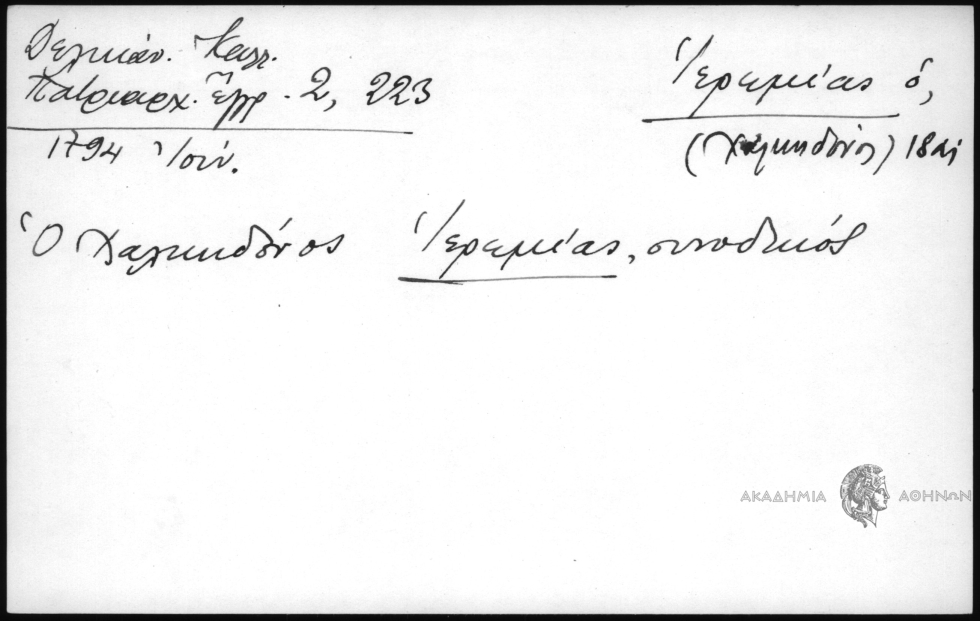 Δελικάν. Καλλ.
Πατριαρχ. Ἔγγρ. 2, 223
1794 Ἰούν.
Ἱερεμίας ὁ,
(Χαλκηδόνος) 18 αἰ
Ὁ Χαλκηδόνος Ἱερεμίας, συνοδικός
ΑΚΑΔΗΜΙΑ ΑΘΗΝΩΝ